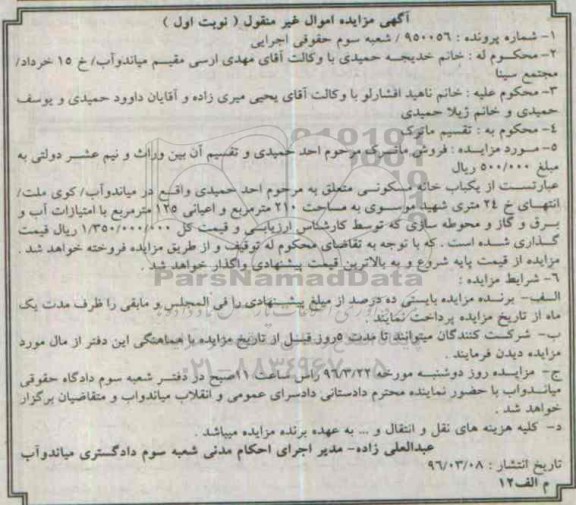 آگهی مزایده اموال غیر منقول ( نوبت اول )
۱- شماره پرونده : ۹۵۰۰۵۶ / شعبه سوم حقوقی اجرایی
۲- محکــوم له : خانم خدیجــه حمیدی با وکالت آقای مهدی ارسی مقیــم میاندوآب/ خ ۱۵ خرداد/
مجتمع سینا
۳- محکوم علیه : خانم ناهید افشارلو با وکالت آقای یحیی میری زاده و آقایان داوود حمیدی و یوسف
حمیدی و خانم ژیلا حمیدی
٤- محکوم به : تقسیم ماترک
۵- مـورد مزایـده : فروش ماتـرک مرحوم احد حمیدی و تقسیم آن بین وراث و نیم عشـر دولتی به
مبلغ ۵۰۰/۰۰۰ ریال
عبارتست از یکباب خانه مسکونـی متعلق به مرحوم احد حمیدی واقـع در میاندوآب/ کوی ملت/
انتهای خ ۲٤ متری شهید موسـوی به مساحت ۲۱۰ مترمربع و اعیانی ۱۲۵ مترمربع با امتیازات آب و
بـرق و گاز و محوطه سازی که توسط کارشناس ارزیابـی و قیمت کل ۱/۳۵۰/۰۰۰/۰۰۰ ریال قیمت
گـذاری شـده است . که با توجه به تقاضای محکوم له توقیف و از طریق مزایده فروخته خواهد شد .
مزایده از قیمت پایه شروع و به بالاترین قیمت پیشنهادی واگذار خواهد شد .
۶- شرایط مزایده :
الـف- برنـده مزایده بایستی ده درصد از مبلغ پیشـنهادی را فی المجلس و مابقی را ظرف مدت یک
ماه از تاریخ مزایده پرداخت نمایند .
ب- شرکت کنندگان میتوانند تا مدت ۵روز قبـل از تاریخ مزایده با هماهنگی این دفتر از مال مورد
مزایده دیدن فرمایند .
ج- مزایـده روز دوشنبـه مورخه ۹۶/۳/۲۲ راس ساعت ۱۱صبح در دفتـر شعبه سوم دادگاه حقوقی
میانـدواب با حضور نماینده محترم دادستانی دادسرای عمومی و انقلاب میاندواب و متقاضیان برگزار
خواهد شد .
د- کلیه هزینه های نقل و انتقال و ... به عهده برنده مزایده میباشد .
عبدالعلی زاده- مدیر اجرای احکام مدنی شعبه سوم دادگستری میاندوآب
تاریخ انتشار : ۹۶/۰۳/۰۸
م الف۱۲
ParsNamadData
۰۲۱-۸۸۳۴۹۶۷۰